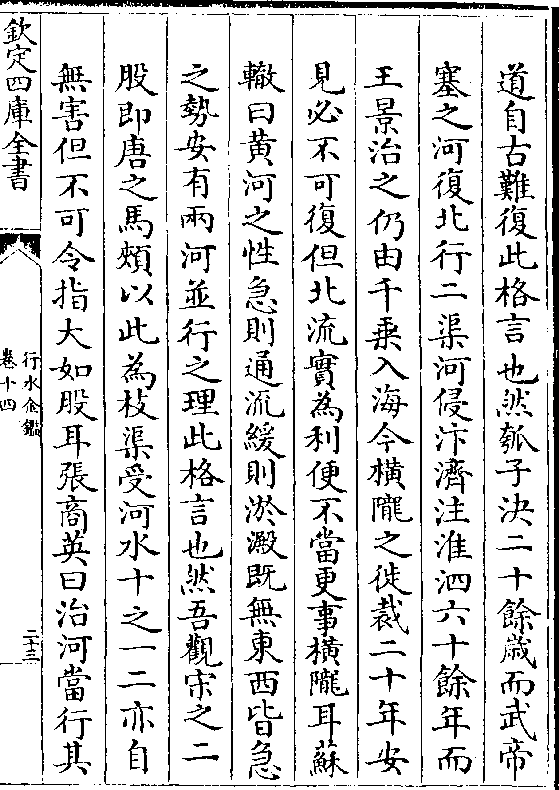 道自古難復此格言也然瓠子決二十餘歳而武帝
塞之河復北行二渠河侵汴濟注淮泗六十餘年而
王景治之仍由千乗入海今橫隴之徙裁二十年安
見必不可復但北流實為利便不當更事橫隴耳蘇
轍曰黄河之性急則通流緩則淤澱既無東西皆急
之勢安有兩河並行之理此格言也然吾觀宋之二
股即唐之馬頰以此為枝渠受河水十之一二亦自
無害但不可令指大如股耳張商英曰治河當行其
欽定四庫全書
行水金鑑
卷十四
二十三